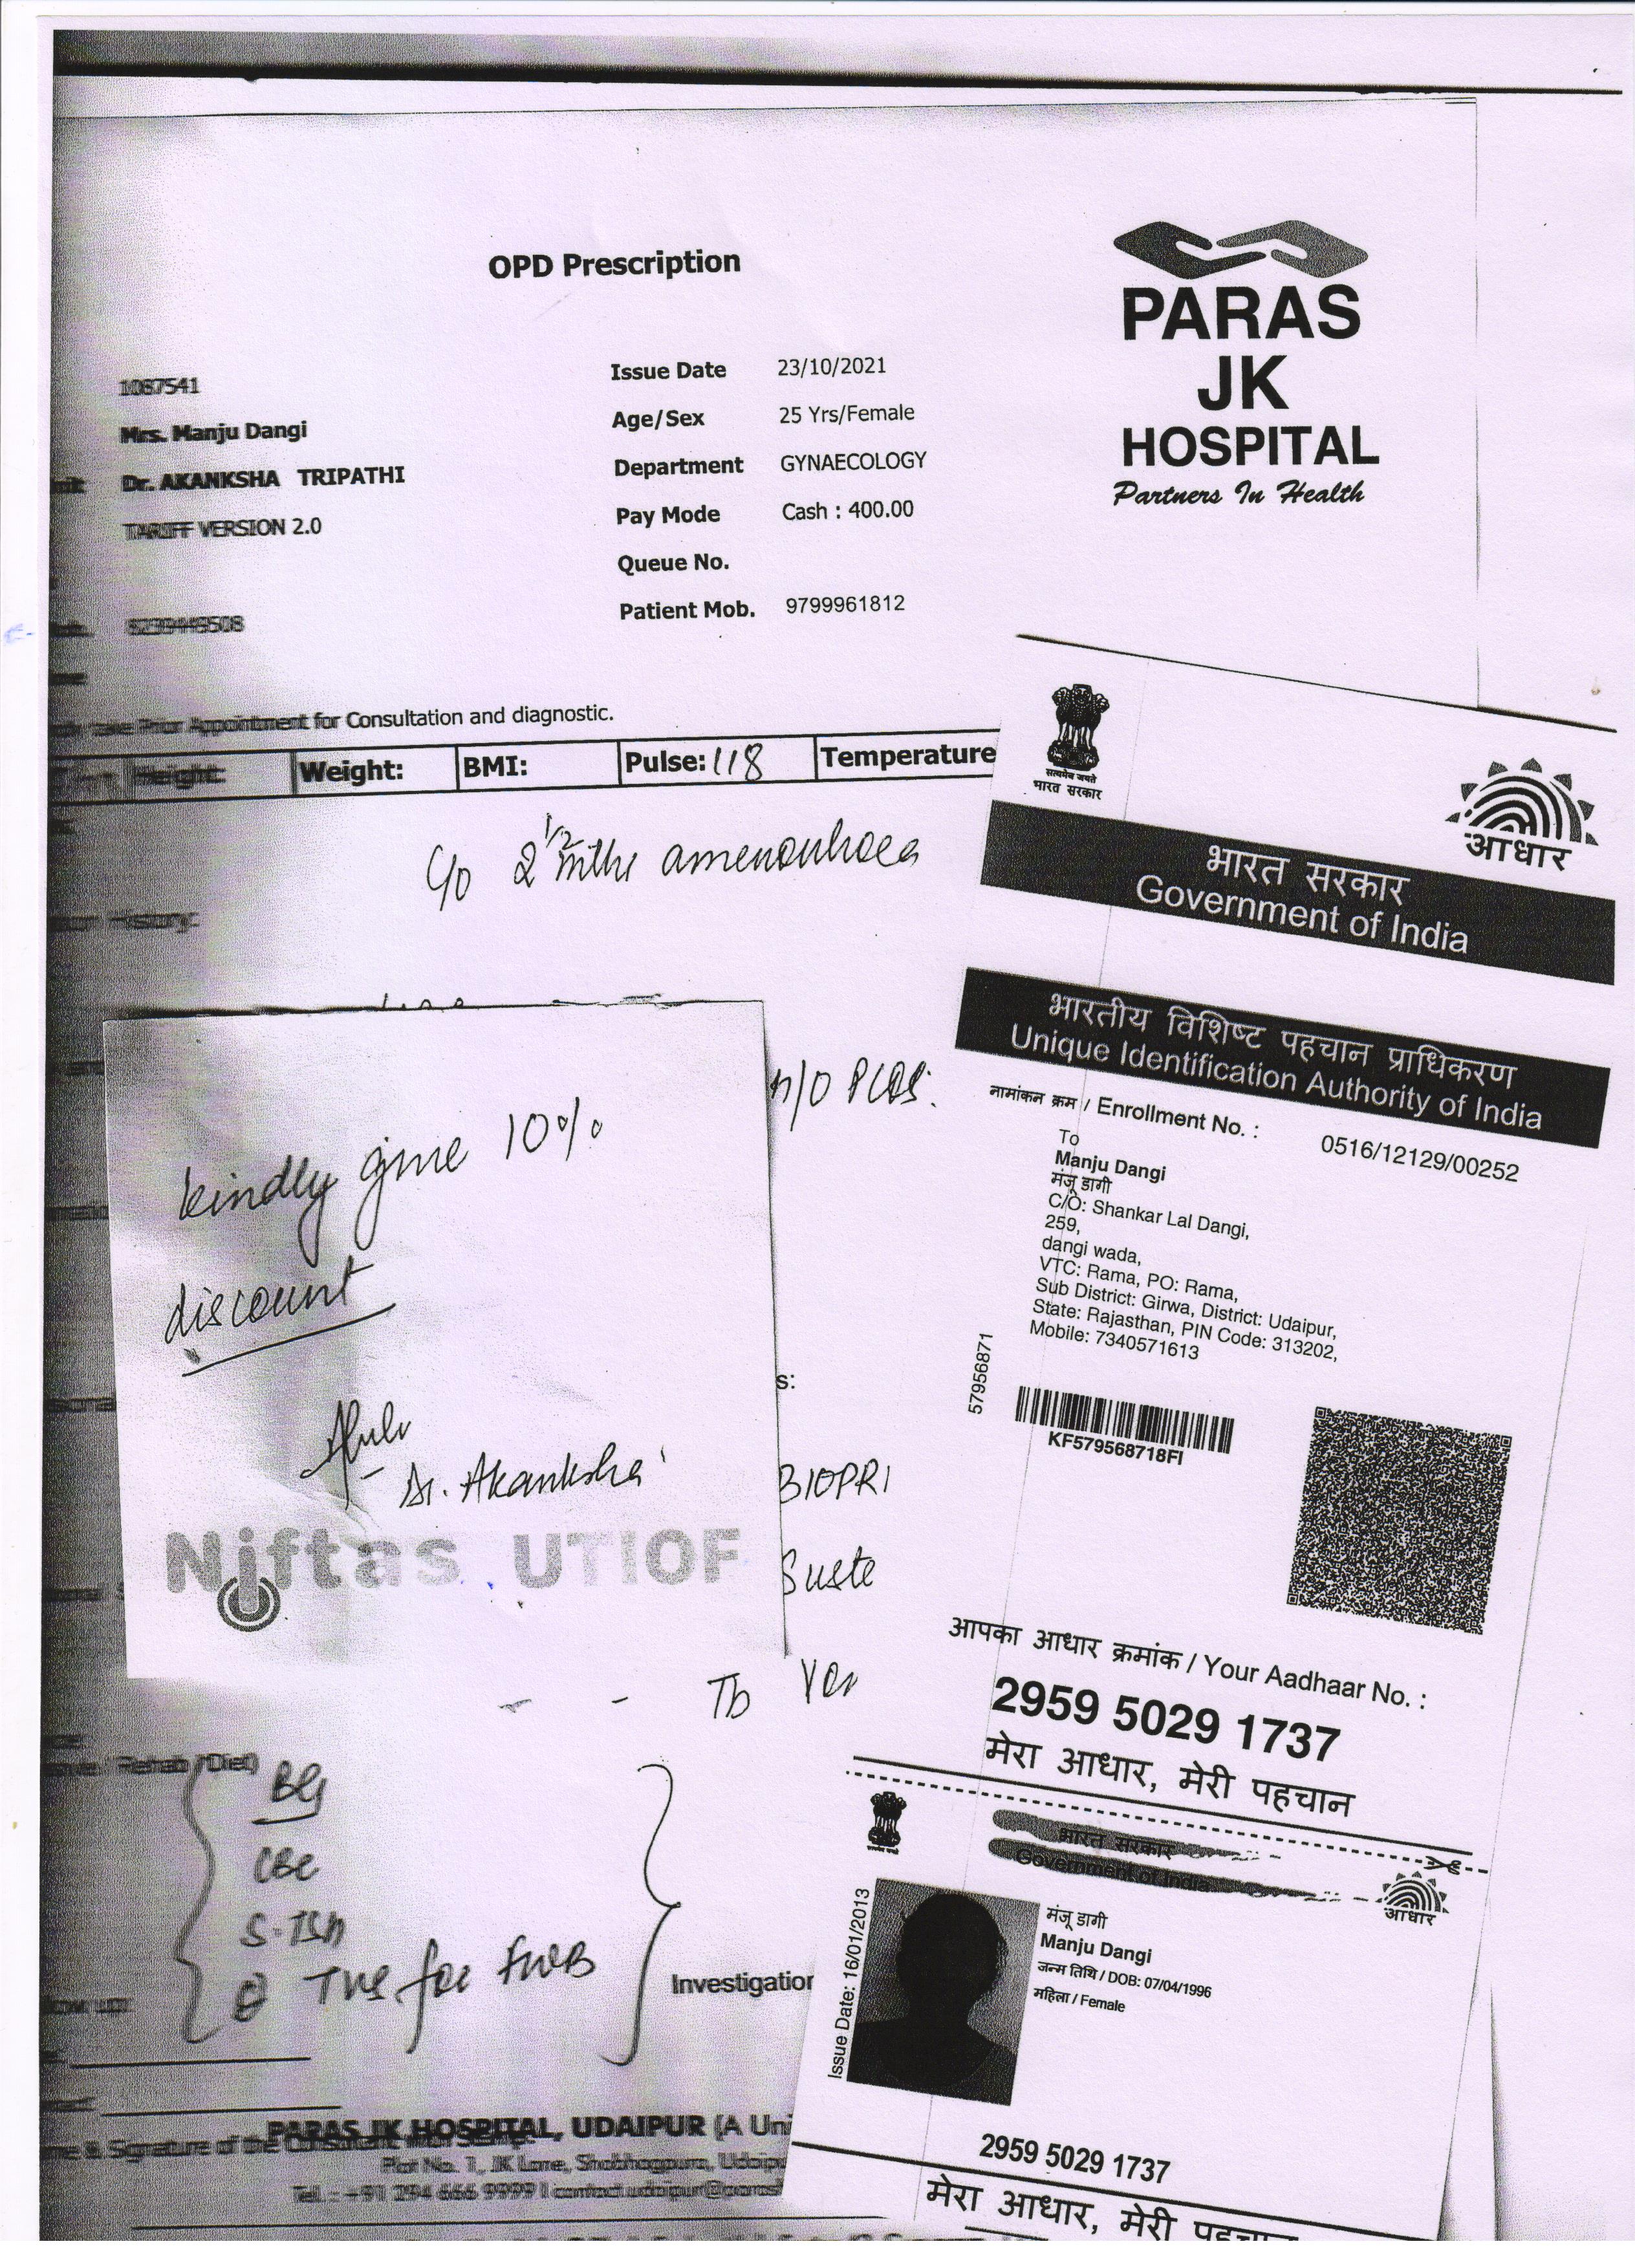 OPD Prescription
PARAS
JK
HOSPITAL
Partners In Health
1087541
Mrs. Manju Dangi
Dr. AKANKSHA TRIPATHI
TARIFF VERSION 2.0
Issue Date 23/10/2021
Age/Sex 25 Yrs/Female
Department GYNAECOLOGY
Pay Mode Cash : 400.00
Queue No.
Patient Mob. 9799961812
Prior Appointment for Consultation and diagnostic.
Height: Weight: BMI: Pulse: 118 Temperature
C/o 2 1/2 mths amenorrhoea
History:
h/o PCOS.
kindly give 10%
discount
Dr. Akanksha
Niftas UTIOF
s:
BIOPRI
Suste
Tb
Rehab /Diet)
BG
CBC
S. TSH
TVS for FWB
Investigation
PARAS JK HOSPITAL, UDAIPUR (A Uni
& Signature of the Consultant
Plot No. 1, JK Lane, Shobhagpura, Udaipu
Tel. : +91 294 666 9999 | contact.udaipur@paras
सत्यमेव जयते
भारत सरकार
आधार
भारत सरकार
Government of India
भारतीय विशिष्ट पहचान प्राधिकरण
Unique Identification Authority of India
नामांकन क्रम / Enrollment No. : 0516/12129/00252
To
Manju Dangi
मंजू डागी
C/O: Shankar Lal Dangi,
259,
dangi wada,
VTC: Rama, PO: Rama,
Sub District: Girwa, District: Udaipur,
State: Rajasthan, PIN Code: 313202,
Mobile: 7340571613
57956871
KF579568718FI
आपका आधार क्रमांक / Your Aadhaar No. :
2959 5029 1737
मेरा आधार, मेरी पहचान
भारत सरकार
Government of India
आधार
Issue Date: 16/01/2013
मंजू डागी
Manju Dangi
जन्म तिथि / DOB: 07/04/1996
महिला / Female
2959 5029 1737
मेरा आधार, मेरी पहचान